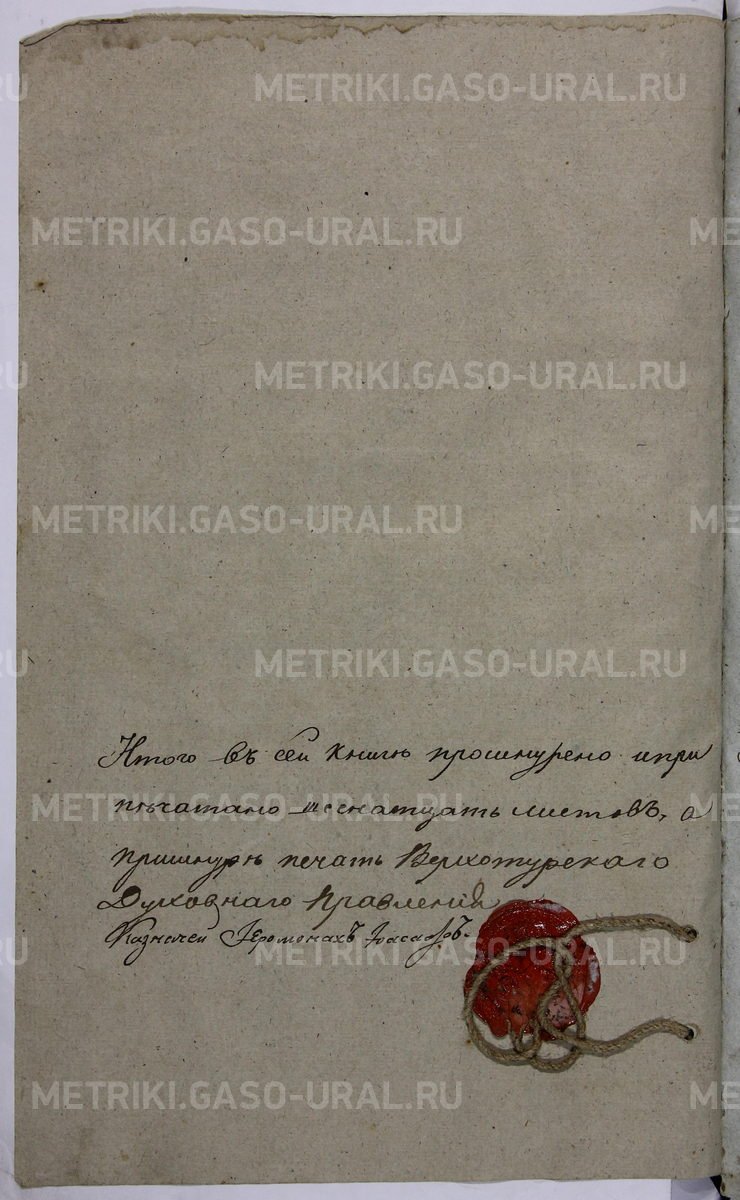 METRIKI.GASO-URAL.RU
METRIKI.GASO-URAL.RU
METRIKI.GASO-URAL.RU
METRIKI.GASO-URAL.RU
METRIKI.GASO-URAL.RU
Итого въ сей книгѣ прошнурено ипри
пѣчатано шеснатцать листовъ, а
METRIKI.GASO-URAL.RU
пришнурѣ печать Верхотурскаго
Духовнаго Правленія
Казначей Іеромонахъ Іоасафъ.
METRIKI.GASO-URAL.RU
METRIKI.GASO-URAL.RU